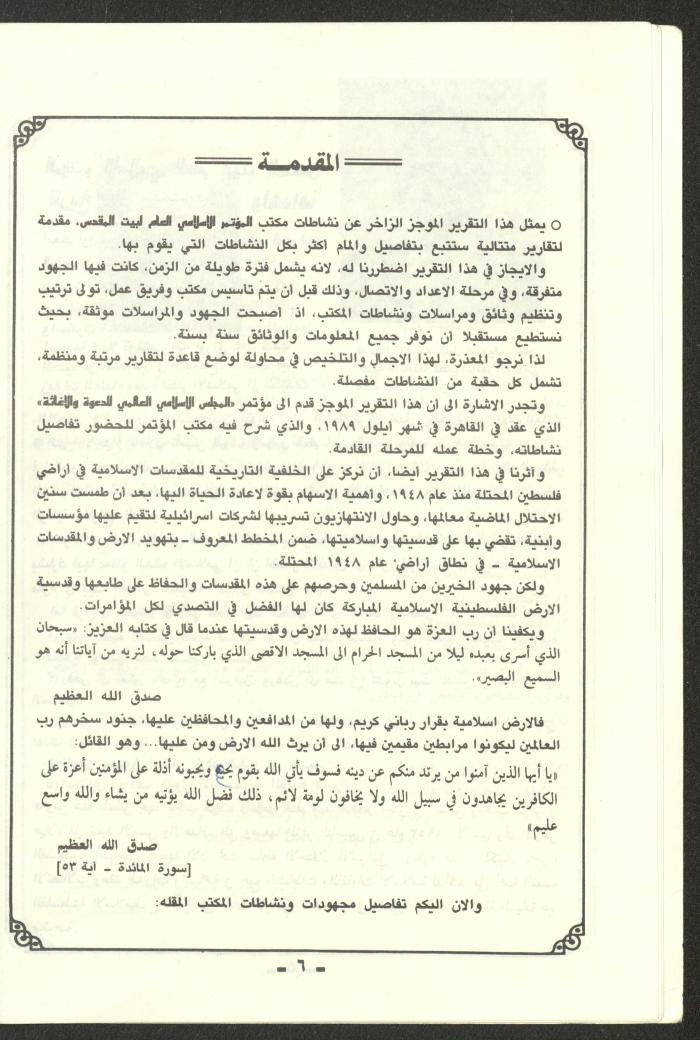 المقدمـــة
○ يمثل هذا التقرير الموجز الزاخر عن نشاطات مكتب المؤتمر الاسلامي العام لبيت المقدس، مقدمة
لتقارير متتالية ستتبع بتفاصيل والمام اكثر بكل النشاطات التي يقوم بها.
والايجاز في هذا التقرير اضطررنا له، لانه يشمل فترة طويلة من الزمن، كانت فيها الجهود
متفرقة، وفي مرحلة الاعداد والاتصال، وذلك قبل أن يتم تأسيس مكتب وفريق عمل، تولى ترتيب
وتنظيم وثائق ومراسلات ونشاطات المكتب، اذ أصبحت الجهود والمراسلات موثقة، بحيث
نستطيع مستقبلا أن نوفر جميع المعلومات والوثائق سنة بسنة.
لذا نرجو المعذرة، لهذا الاجمال والتلخيص في محاولة لوضع قاعدة لتقارير مرتبة ومنظمة،
تشمل كل حقبة من النشاطات مفصلة.
وتجدر الاشارة الى أن هذا التقرير الموجز قدم الى مؤتمر «المجلس الاسلامي العالمي للدعوة والاغاثة»
الذي عقد في القاهرة في شهر أيلول ١٩٨٩، والذي شرح فيه مكتب المؤتمر للحضور تفاصيل
نشاطاته، وخطة عمله للمرحلة القادمة.
وآثرنا في هذا التقرير أيضا، أن نركز على الخلفية التاريخية للمقدسات الاسلامية في أراضي
فلسطين المحتلة منذ عام ١٩٤٨، وأهمية الاسهام بقوة لاعادة الحياة اليها، بعد أن طمست سنين
الاحتلال الماضية معالمها، وحاول الانتهازيون تسريبها لشركات اسرائيلية لتقيم عليها مؤسسات
وأبنية، تقضي بها على قدسيتها واسلاميتها، ضمن المخطط المعروف ـ بتهويد الارض والمقدسات
الاسلامية ـ في نطاق أراضي عام ١٩٤٨ المحتلة.
ولكن جهود الخيرين من المسلمين وحرصهم على هذه المقدسات والحفاظ على طابعها وقدسية
الارض الفلسطينية الاسلامية المباركة كان لها الفضل في التصدي لكل المؤامرات.
ويكفينا أن رب العزة هو الحافظ لهذه الارض وقدسيتها عندما قال في كتابه العزيز: «سبحان
الذي أسرى بعبده ليلا من المسجد الحرام الى المسجد الاقصى الذي باركنا حوله، لنريه من آياتنا أنه هو
السميع البصير».
صدق الله العظيم
فالارض اسلامية بقرار رباني كريم، ولها من المدافعين والمحافظين عليها، جنود سخرهم رب
العالمين ليكونوا مرابطين مقيمين فيها، الى أن يرث الله الارض ومن عليها... وهو القائل:
«يا أيها الذين آمنوا من يرتد منكم عن دينه فسوف يأتي الله بقوم ويحبونه أذلة على المؤمنين أعزة على
الكافرين يجاهدون في سبيل الله ولا يخافون لومة لائم، ذلك فضل الله يؤتيه من يشاء والله واسع
عليم»
صدق الله العظيم
[سورة المائدة ـ آية ٥٣]
والان اليكم تفاصيل مجهودات ونشاطات المكتب المقله:
ـ ٦ ـ